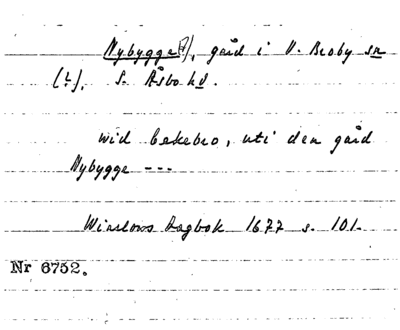 Nybygge(?), gård i V. Broby sn
(?), S. Åsbo hd.
wid bekebro, uti den gård
Nybygge ---
Winslows Dagbok 1677 s. 101.
Nr 6752.